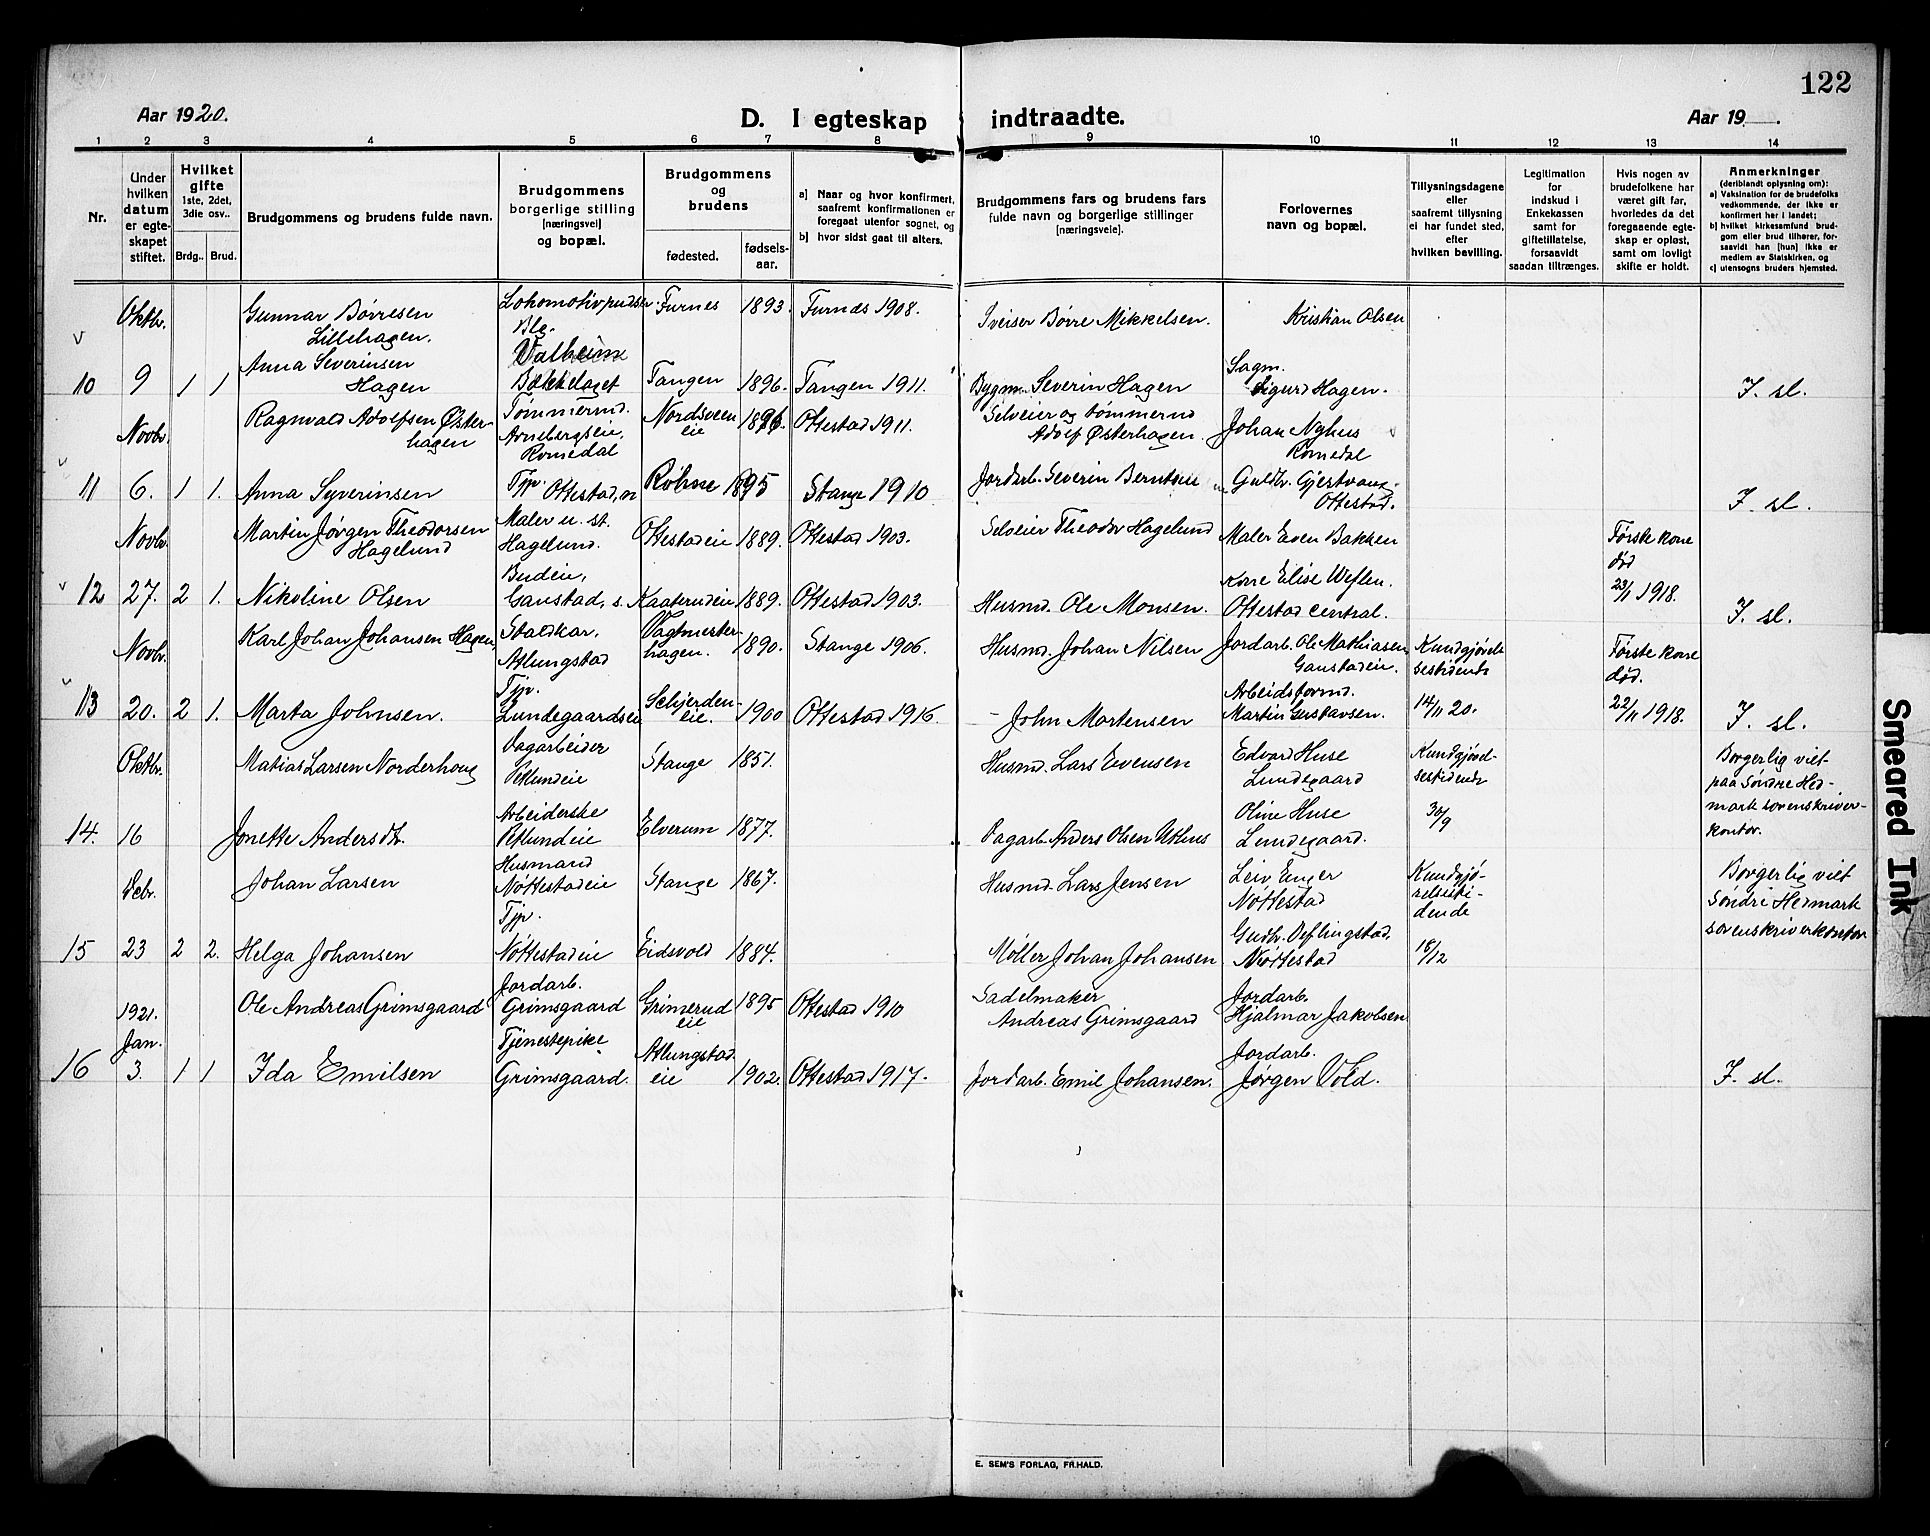 122
Aar 1920.
D. I egteskap indtraadte.
Aar 19 .
1 2 3 4 5 6 7 8 9 10 11 12 13 14
Nr.
Under hvilken datum er egteskapet stiftet.
Hvilket gifte 1ste, 2det, 3die osv..
Brdg.. Brud.
Brudgommens og brudens fulde navn.
Brudgommens borgerlige stilling (næringsvei) og bopæl.
Brudgommens og brudens
fødested. fødselsaar.
a) Naar og hvor konfirmert, saafremt konfirmationen er foregaat utenfor sognet, og
b) hvor sidst gaat til alters.
Brudgommens fars og brudens fars fulde navn og borgerlige stillinger (næringsveie).
Forlovernes navn og bopæl.
Tillysningsdagene eller saafremt tillysning ei har fundet sted, efter hvilken bevilling.
Legitimation for indskud i Enkekassen samt for giftetillatelse, forsaavidt saadan tiltrænges.
Hvis nogen av brudefolkene har været gift før, hvorledes da det foregaaende egteskap er opløst, samt om lovligt skifte er holdt.
Anmerkninger (deriblandt oplysning om): a) Vaksination for de brudefolks vedkommende, der ikke er konfirmert her i landet; b) hvilket kirkesamfund brudgom eller brud tilhører, forsaavidt han [hun] ikke er medlem av Statskirken, og c) utensogns bruders hjemsted.
Oktbr. Gunnar Børresen Lillehagen. Lokomotivpudser Furnes 1893. Furnes 1908. Sveiser Børre Mikkelsen. Kristian Olsen
10 9 1 1 Anna Severinsen Hagen Valheim Bækkelaget Tangen 1896. Tangen 1911. Bygm. Severin Hagen Sagm. Sigurd Hagen. F. sl.
Novbr. Ragnvald Adolfsen Østerhagen Tømmermd. Arnebergseie, Romedal Nordsveen eie 1896. Ottestad 1911. Selveier og tømmermd Adolf Østerhagen. Johan Nyhus Romedal
11 6. 1 1. Anna Syverinsen Tjp. Ottestad, n Röhne 1895 Stange 1910 Jordarb. Severin Berntsen Guldbr. Gjestvang. Ottestad. F. sl.
Novbr. Martin Jørgen Theodorsen Hagelund Maler u. st. Hagelund. Ottestadeie 1889. Ottestad 1903. Selveier Theodor Hagelund Maler Even Bakken Første kone død
12 27. 2 1. Nikoline Olsen Budeie, Ganstad, s. Kaaterudeie 1889. Ottestad 1903. Husmd. Ole Monsen. Kone Elise Weflen. Ottestad central. 1918. F. sl.
Novbr. Karl Johan Johansen Hagen, Staldkar, Atlungstad Vagtmesterhagen. 1890. Stange 1906. Husmd. Johan Nilsen Jordarb. Ole Mathiasen Ganstadeie. Kundgjørelsestidende Første kone død.
13 20. 2 1. Marta Johnsen. Tjp. Lundegaardseie Schjerdeneie. 1900 Ottestad 1916. – John Mortensen Arbeidsformd. Martin Gustavsen. 14/11 20. 22/11 1918. F. sl.
Oktbr. Matias Larsen Norderhoug Dagarbeider Petlundeie Stange 1851. Husmd. Lars Evensen Edvard Huse Lundegaard Kundgjørelsestidende Borgerlig viet paa Søndre Hedmark sorenskriverkontor.
14. 16 Jonette Andersdtr. Arbeiderske Petlundeie Elverum 1877. Dagarb. Anders Olsen Uthus Oline Huse Lundegaard. 30/9
Debr. Johan Larsen Husmand Nøttestadeie Stange 1867. Husmd. Lars Jensen Leiv Enger Nøttestad Kundgjørelsestidende Borgerlig viet Søndre Hedmark sorenskriverkontor
15 23 2 2. Helga Johansen Tjp. Nøttestadeie Eidsvold 1884. Møller Johan Johansen Gudbr. Veflingstad, Nøttestad 18/12
1921. Ole Andreas Grimsgaard Jordarb. Grimsgaard Grimerud eie 1895 Ottestad 1910 Sadelmaker Andreas Grimsgaard Jordarb. Hjalmar Jakobsen
16 Jan. 3. 1 1 Ida Emilsen Tjenestepike Grimsgaard. Atlungstad eie 1902. Ottestad 1917. Jordarb. Emil Johansen. Jordarb. Jørgen Vold. F. sl.
E. SEM'S FORLAG, FR.HALD.
Smeared Ink